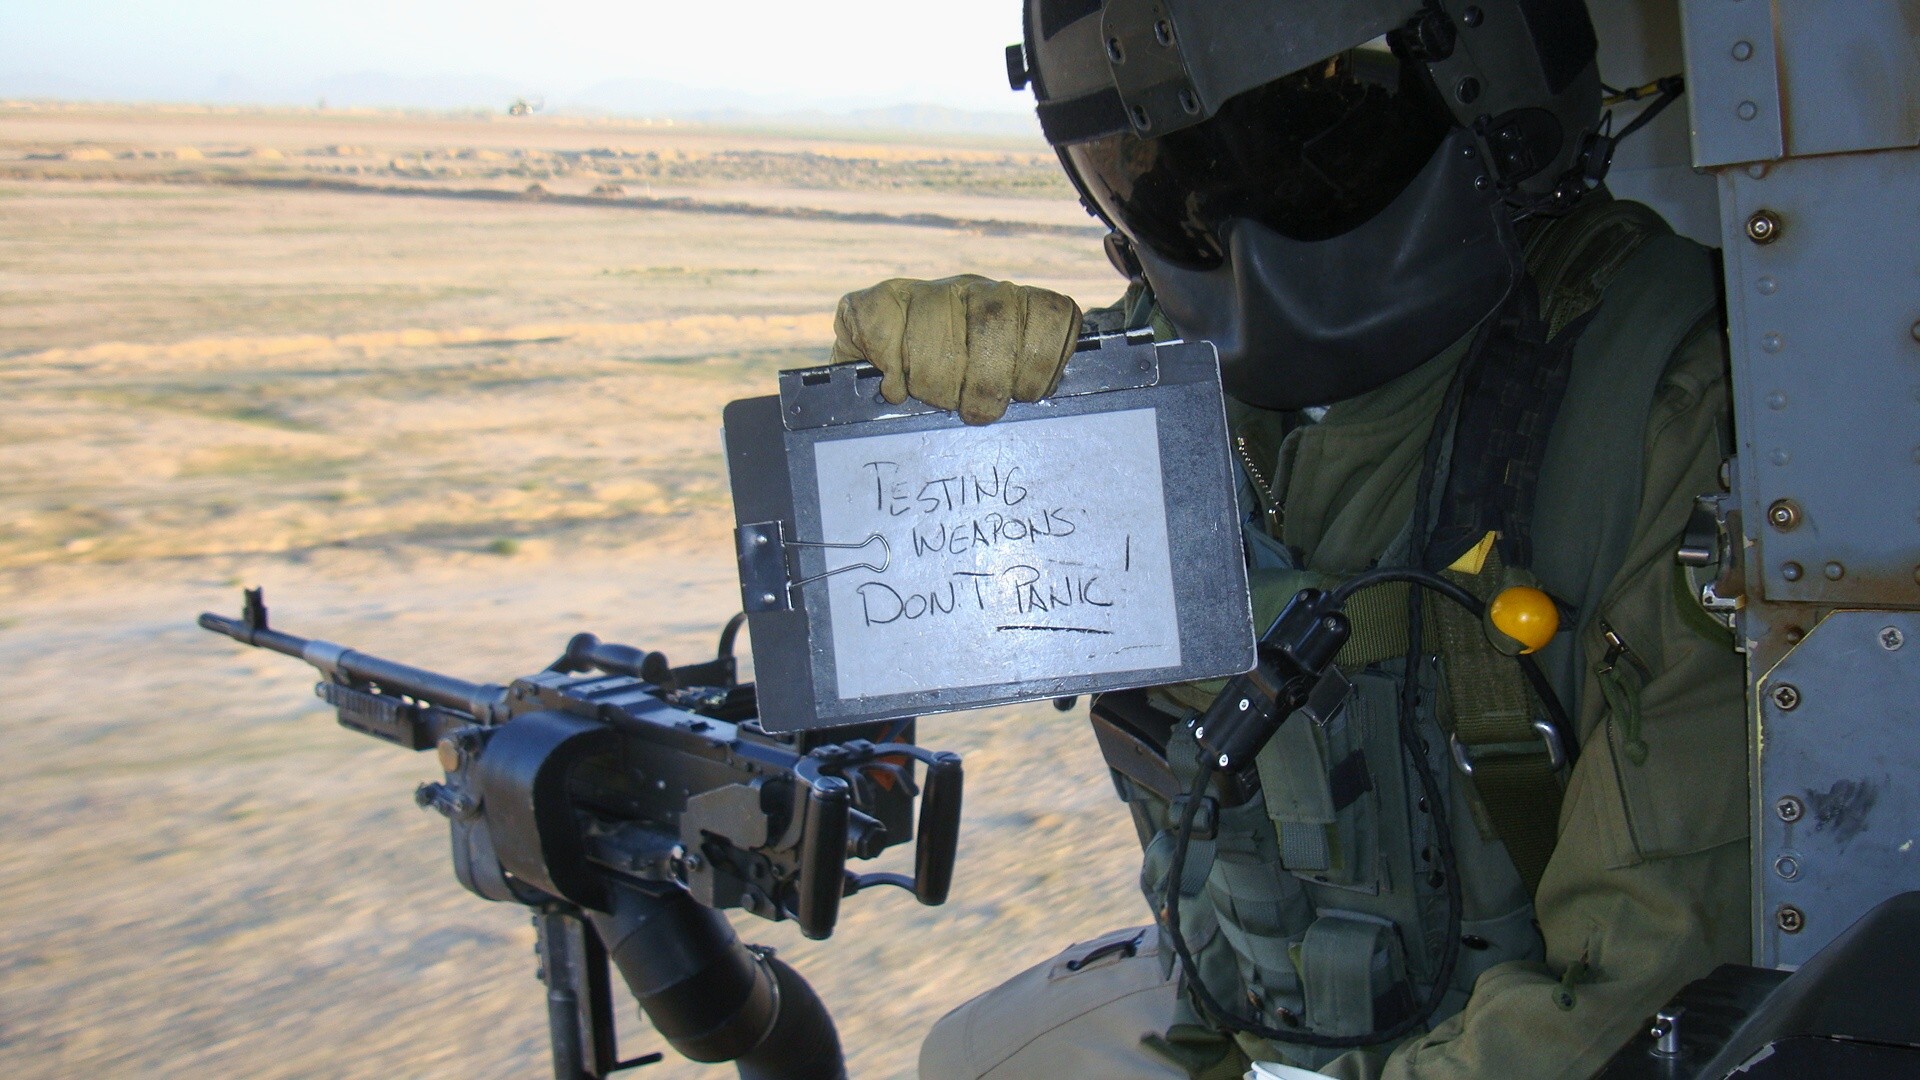 TESTING
WEAPONS.
DON'T PANIC!